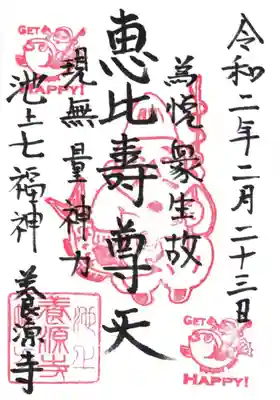 令和二年二月二十三日
為悦衆生故
恵比寿尊天
現無量神力
池上七福神
養源寺
GET
HAPPY!
池上
養源寺
GET
HAPPY!